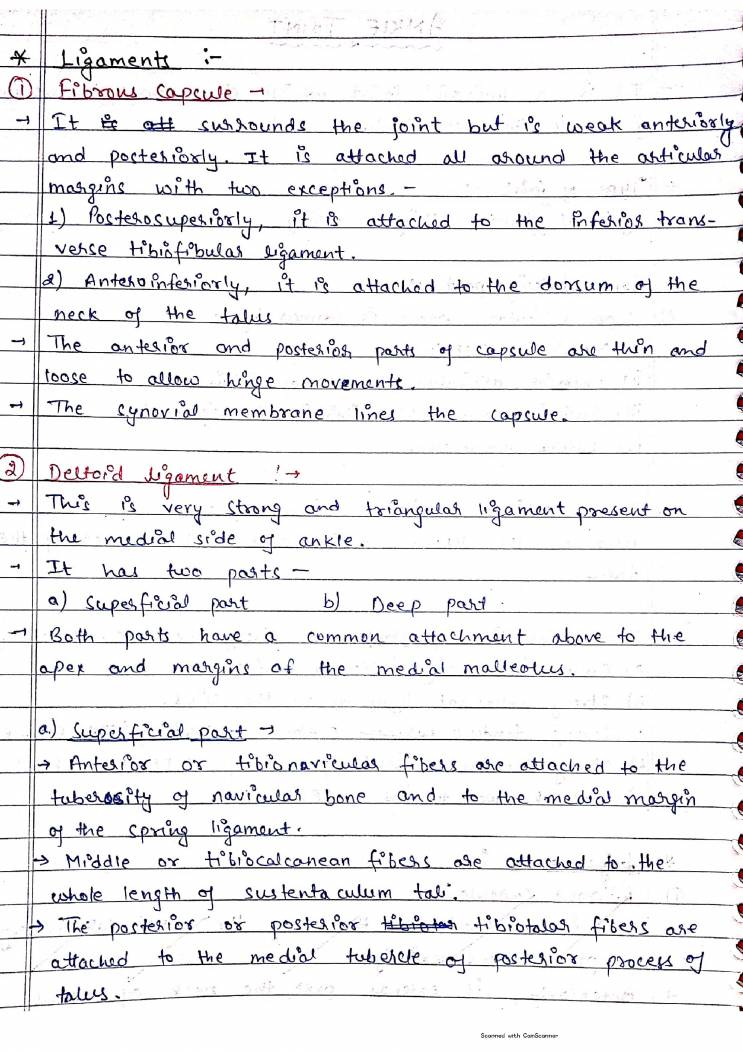 * Ligaments :-
① Fibrous Capsule →
→ It is all surrounds the joint but is weak anteriorly
and posteriorly. It is attached all around the articular
margins with two exceptions. -
1) Posterosuperiorly, it is attached to the inferior trans-
verse tibiofibular ligament.
2) Anteroinferiorly, it is attached to the dorsum of the
neck of the talus
→ The anterior and posterior parts of capsule are thin and
loose to allow hinge movements.
→ The synovial membrane lines the capsule.
② Deltoid ligament :→
→ This is very strong and triangular ligament present on
the medial side of ankle.
→ It has two parts -
a) Superficial part b) Deep part.
→ Both parts have a common attachment above to the
apex and margins of the medial malleolus.
a.) Superficial part →
→ Anterior or tibionavicular fibers are attached to the
tuberosity of navicular bone and to the medial margin
of the spring ligament.
→ Middle or tibiocalcanean fibers are attached to the
whole length of sustentaculum tali.
→ The posterior or posterior tibiotalar fibers are
attached to the medial tubercle of posterior process of
talus.
Scanned with CamScanner